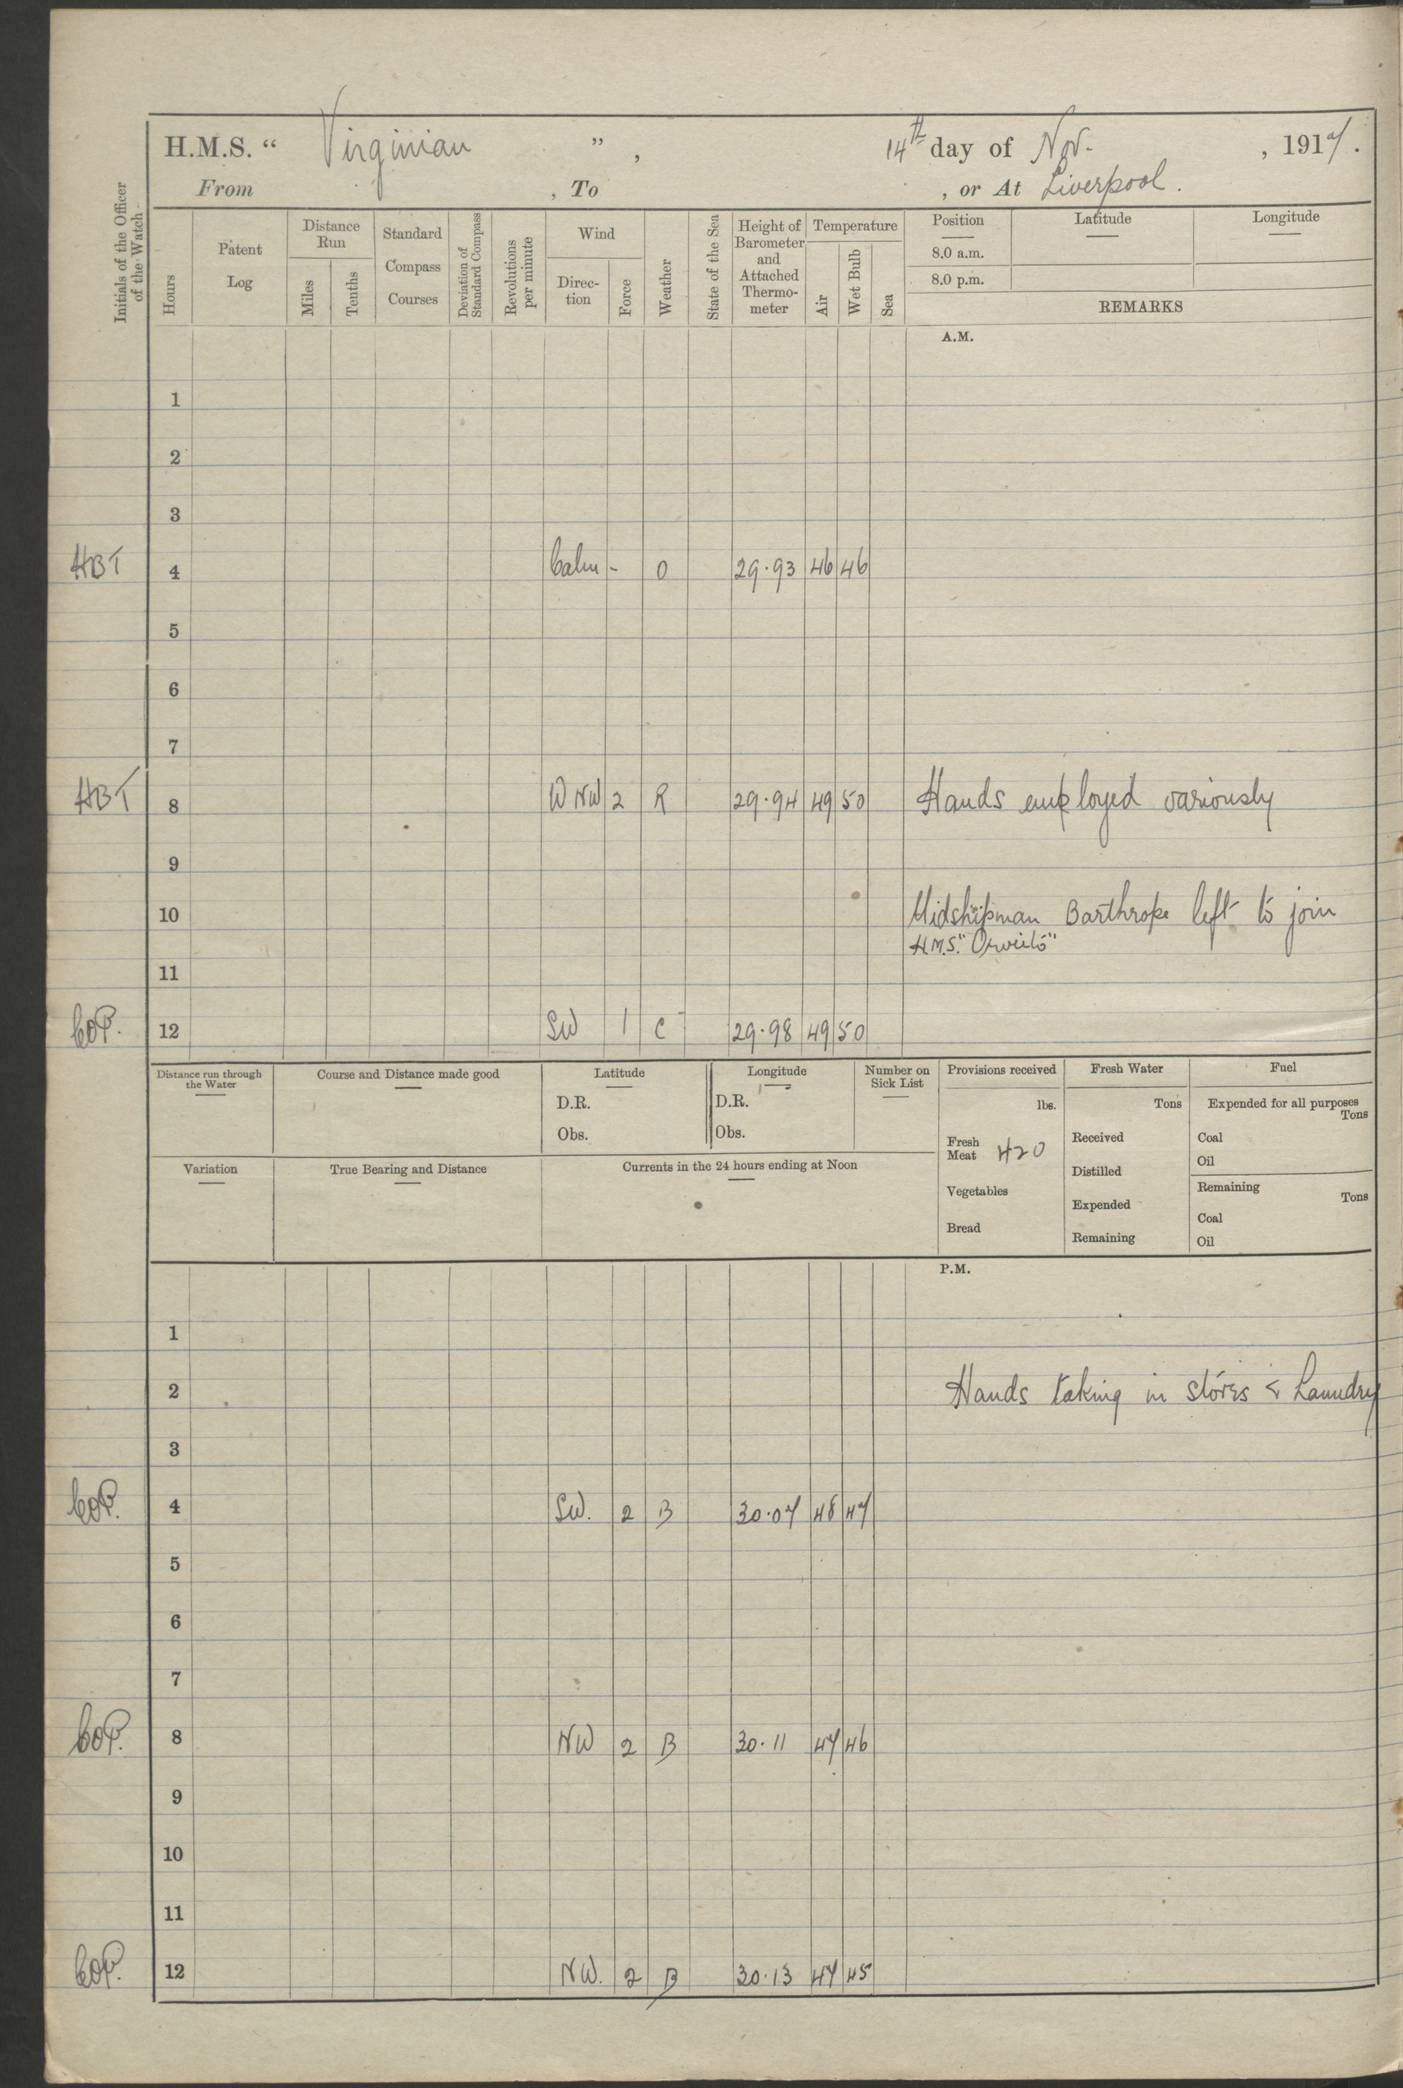 H.M.S. “ Virginian ” , 14th day of Nov. , 1917.
From , To , or At Liverpool.
Initials of the Officer of the Watch
Hours
Patent Log
Distance Run
Miles
Tenths
Standard Compass Courses
Deviation of Standard Compass
Revolutions per minute
Wind
Direc-tion
Force
Weather
State of the Sea
Height of Barometer and Attached Thermo-meter
Temperature
Air
Wet Bulb
Sea
Position
Latitude
Longitude
8.0 a.m.
8.0 p.m.
REMARKS
A.M.
1
2
3
HBT 4 Calm - O 29.93 46 46
5
6
7
HBT 8 WNW 2 R 29.94 49 50 Hands employed variously
9
10 Midshipman Barthrope left to join
H.M.S. "Orvieto"
11
COP. 12 SW 1 C 29.98 49 50
Distance run through the Water
Course and Distance made good
Latitude
D.R.
Obs.
Longitude
D.R.
Obs.
Number on Sick List
Provisions received
lbs.
Fresh Meat 420
Vegetables
Bread
Fresh Water
Tons
Received
Distilled
Expended
Remaining
Fuel
Expended for all purposes
Tons
Coal
Oil
Remaining
Tons
Coal
Oil
Variation
True Bearing and Distance
Currents in the 24 hours ending at Noon
P.M.
1
2 Hands taking in stores & Laundry
3
COP. 4 SW. 2 B 30.07 48 47
5
6
7
COP. 8 NW 2 B 30.11 47 46
9
10
11
COP. 12 NW. 2 B 30.13 47 45